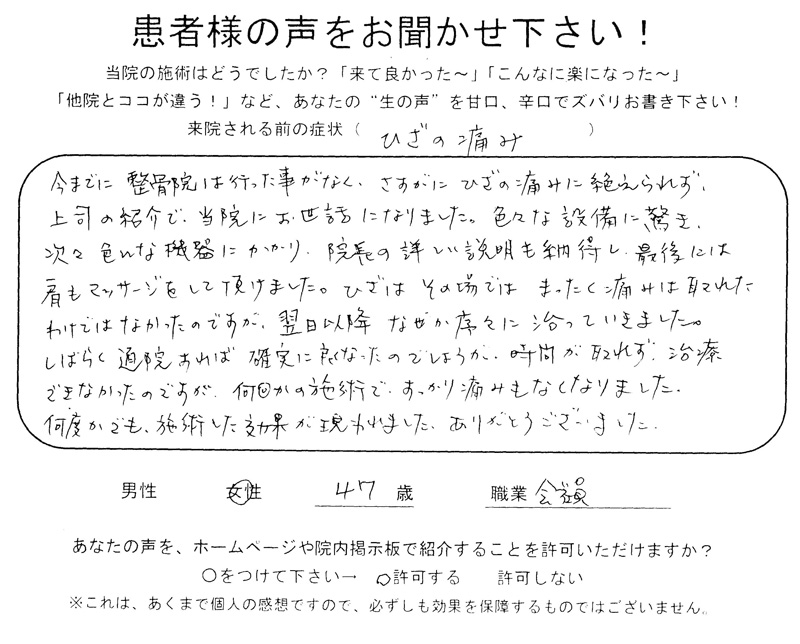 患者様の声をお聞かせ下さい！
当院の施術はどうでしたか？「来て良かった～」「こんなに楽になった～」
「他院とココが違う！」など、あなたの“生の声”を甘口、辛口でズバリお書き下さい！
来院される前の症状（ ひざの痛み ）
今までに 整骨院は行った事がなく、さすがに ひざの痛みに絶えられず、
上司の紹介で、当院にお世話になりました。色々な設備に驚き、
次々 色んな機器にかかり、院長の詳しい説明も納得し、最後には
肩もマッサージをして頂けました。ひざは その場では まったく痛みは取れた
わけではなかったのですが、翌日以降 なぜか序々に治っていきました。
しばらく通院あれば 確実に良くなったのでしょうが、時間が取れず、治療
できなかったのですが、何回かの施術で、すっかり痛みもなくなりました。
何度かでも、施術した効果が現われました、ありがとうございました。
男性 女性 47 歳 職業 会社員
あなたの声を、ホームページや院内掲示板で紹介することを許可いただけますか？
〇をつけて下さい→ 〇許可する 許可しない
※これは、あくまで個人の感想ですので、必ずしも効果を保障するものではございません。